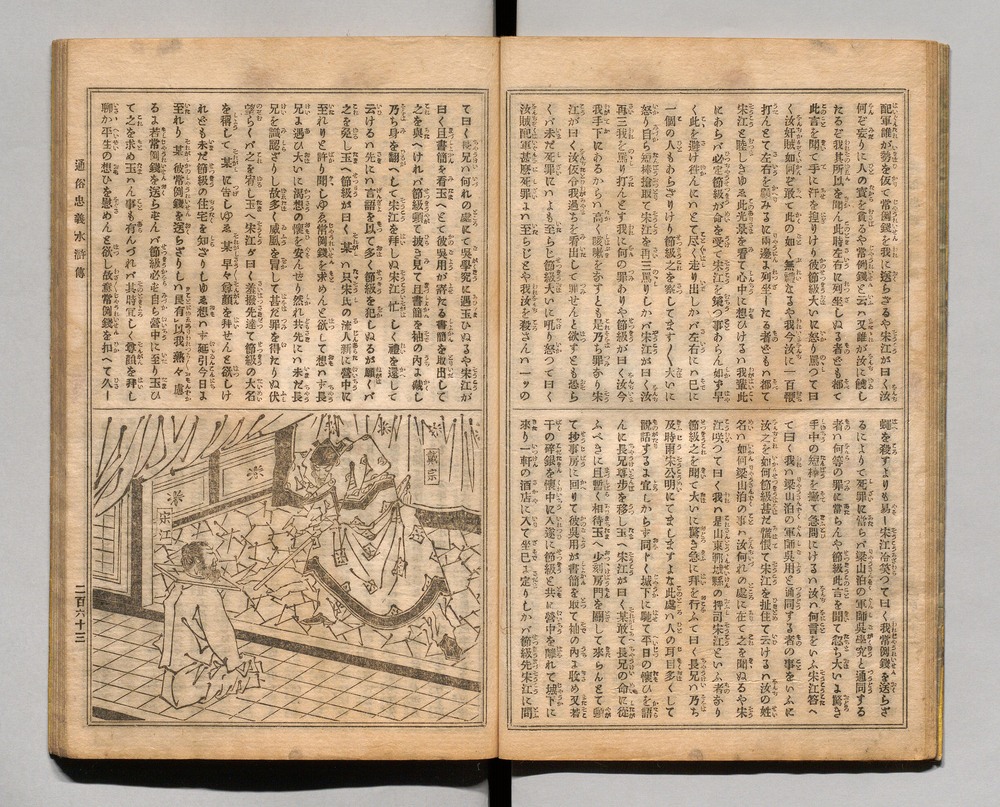 配軍誰が勢を仮て常例錢を我に送らざるや宋江が曰く汝
何ぞ妄りに人の賓を貪るや常例錢と云ハ又誰が汝に饒し
たるぞ我其所以を聞ん此時左右に列坐しぬる者ども都て
此言を聞て手に汗を握りけり彼節級大いに怒り罵つて曰
く汝奸賊如何ぞ敢て此の如く無禮なるや我今汝に一百棍
打んとて左右を顧みるに兩邊ょ列坐したる者どもハ都て
宋江と睦しきゆゑ此光景を看て心中に想ひけるハ我輩此
にあらバ必定節級が命を受て宋江を棍つ事あらん如ず早
く此を避け往んにハとて尽く走り出しかバ左右にハ已に
一個の人もあらざりけり節級之を察してます〳〵大いに
怒り自ら短棒搶取て宋江を再三罵りしかバ宋江が曰く汝
再三我を罵り打んとす我に何の罪ありや節級が曰く汝今
我手下にあるからハ高く咳嗽を為すとも是乃ち罪あり宋
江が曰く汝仮令我過ちを看出して罪せんと欲すとも恐ら
くハ未だ死罪にハょも至らじと節級大いに吼り怒つて曰く
汝賊配軍甚麼死罪ょハ至らじとや我汝を殺さんハ一ッの
蠅を殺すよりも易し宋江冷笑つて曰く我常例錢を送らざ
るによりて死罪に當らバ梁山泊の軍師吳學究と通同する
者ハ何等の罪に當らんや節級此言を聞て忽ち大いょ驚き
手中の短棒を棄て急問にけるハ汝ハ何言をいふ宋江答へ
て曰く我ハ梁山泊の軍師吳用と通同する者の事をいふに
汝之を如何節級甚だ驚慌て宋江を扯住て云けるハ汝の姓
名ハ如何梁山泊の事ハ汝何れの處に在て之を聞ぬるや宋
江咲つて曰く我ハ是山東鄆城縣の押司宋江といふ者あり
節級之を聞て大いに驚き急に拜を行ふて曰く長兄ハ乃ち
及時雨宋公明にてましますよな此處ハ人の耳目多くして
說話するょ宜しからず同トく城下に馳て平日の懷ひを語
んに長兄尊步を移し玉へ宋江が曰く某敢て長兄の命に從
ふべきに且暫く相待玉へ少刻房門を關して來らんとて頓
て抄事房に回りて彼吳用が書簡を取て袖の內ょ收め又若
干の碎銀を懷中に入遂に節級と共に營中を離れて城下に
來り一軒の酒店に入て坐已ょ定りしかバ節級先宋江に問
て曰く長兄ハ何れの處にて吳學究に遇玉ひぬるや宋江が
曰く且書簡を看玉へとて彼吳用が寄たる書簡を取出して
之を與へけれバ節級頓て披き見て且書簡を袖の內ょ藏し
乃ち身を翻へして宋江を拜しぬ宋江忙しく禮を還して
云けるハ先にハ言語を以て多く節級を犯しぬるが願くバ
之を免し玉へ節級が曰く某しハ只宋氏の流人新に營中に
至れりと許り聞しゆゑ常例錢を求めんと欲して想ハず長
兄ょ遇ひ大いに渴想の懷を安んせり然れ共先にハ未だ長
兄を識認ざりし故多く威風を冒して甚だ罪を得たりぬ伏
望らくハ之を宥し玉へ宋江が曰く差撥先達て節級の大名
を稱して某に告しゆゑ某早々尊顏を拜せんと欲しけ
れども未だ節級の住宅を知ざりしゆゑ想ハず延引今日ょ
至れり某彼常例錢を送らざりしハ良有以我熟々慮
るょ若常例錢を送らせんバ節級必ず自ら當中に至り玉ひ
て之を求め玉ハん事も有んづれバ其時宜しく尊顏を拜し
聊か平生の想ひを慰めんと欲し故意常例錢を扣へて久し
戴宗
宋江
通俗忠義水滸傳
二百六十三